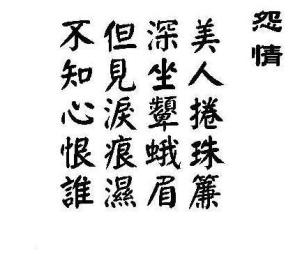 怨情
美人捲珠簾
深坐顰蛾眉
但見淚痕濕
不知心恨誰